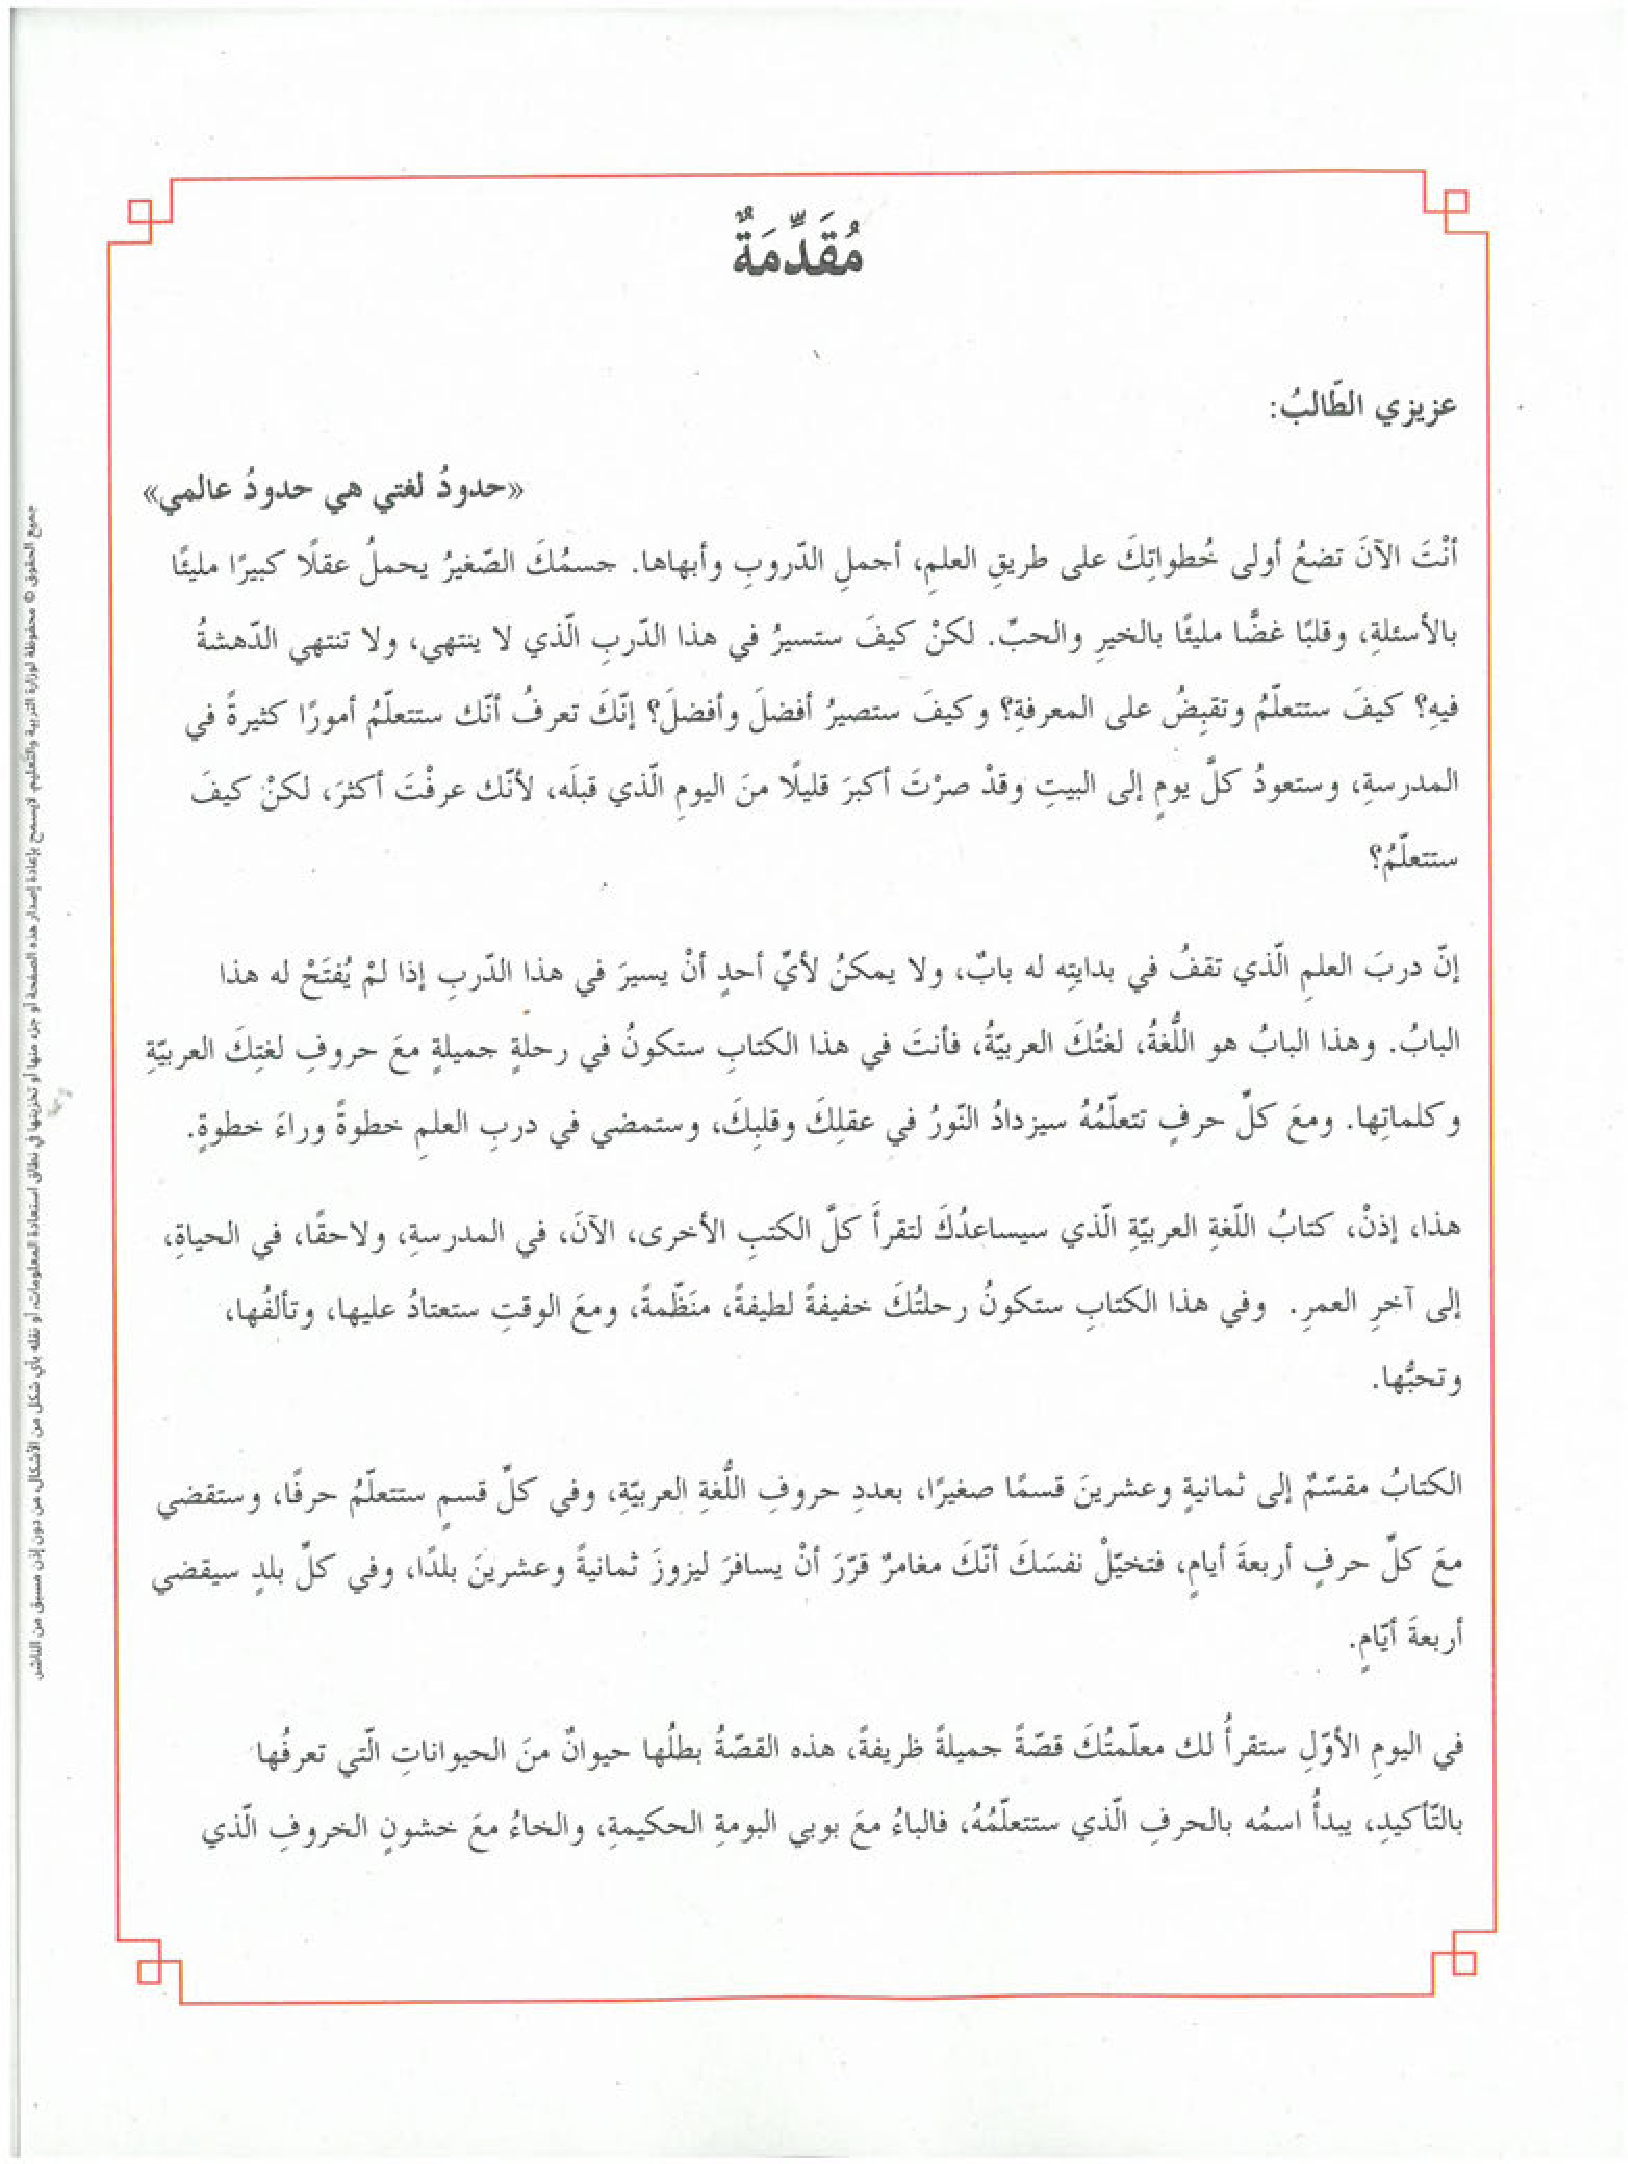 مُقَدِّمَةٌ
عزيزي الطّالبُ:
«حدودُ لغتي هي حدودُ عالمي»
أنْتَ الآنَ تضعُ أولى خُطواتِكَ على طريقِ العلمِ، أجملِ الدّروبِ وأبهاها. جسمُكَ الصّغيرُ يحملُ عقلًا كبيرًا مليئًا
بالأسئلةِ، وقلبًا غضًّا مليئًا بالخيرِ والحبِّ. لكنْ كيفَ ستسيرُ في هذا الدّربِ الّذي لا ينتهي، ولا تنتهي الدّهشةُ
فيهِ؟ كيفَ ستتعلّمُ وتقبِضُ على المعرفةِ؟ وكيفَ ستصيرُ أفضلَ وأفضلَ؟ إنّكَ تعرفُ أنّك ستتعلّمُ أمورًا كثيرةً في
المدرسةِ، وستعودُ كلَّ يومٍ إلى البيتِ وقدْ صرْتَ أكبرَ قليلًا منَ اليومِ الّذي قبلَه، لأنّك عرفْتَ أكثرَ، لكنْ كيفَ
ستتعلّمُ؟
إنّ دربَ العلمِ الّذي تقفُ في بدايتِه له بابٌ، ولا يمكنُ لأيِّ أحدٍ أنْ يسيرَ في هذا الدّربِ إذا لمْ يُفتَحْ له هذا
البابُ. وهذا البابُ هو اللُّغةُ، لغتُكَ العربيّةُ، فأنتَ في هذا الكتابِ ستكونُ في رحلةٍ جميلةٍ معَ حروفِ لغتِكَ العربيّةِ
وكلماتِها. ومعَ كلِّ حرفٍ تتعلّمُهُ سيزدادُ النّورُ في عقلِكَ وقلبِكَ، وستمضي في دربِ العلمِ خطوةً وراءَ خطوةٍ.
هذا، إذنْ، كتابُ اللّغةِ العربيّةِ الّذي سيساعدُكَ لتقرأَ كلَّ الكتبِ الأخرى، الآنَ، في المدرسةِ، ولاحقًا، في الحياةِ،
إلى آخرِ العمرِ. وفي هذا الكتابِ ستكونُ رحلتُكَ خفيفةً لطيفةً، منَظّمةً، ومعَ الوقتِ ستعتادُ عليها، وتألفُها،
وتحبُّها.
الكتابُ مقسّمٌ إلى ثمانيةٍ وعشرينَ قسمًا صغيرًا، بعددِ حروفِ اللُّغةِ العربيّةِ، وفي كلِّ قسمٍ ستتعلّمُ حرفًا، وستقضي
معَ كلِّ حرفٍ أربعةَ أيامٍ، فتخيّلْ نفسَكَ أنّكَ مغامرٌ قرّرَ أنْ يسافرَ ليزورَ ثمانيةً وعشرينَ بلدًا، وفي كلِّ بلدٍ سيقضي
أربعةَ أيّامٍ.
في اليومِ الأوّلِ ستقرأُ لك معلّمتُكَ قصّةً جميلةً ظريفةً، هذه القصّةُ بطلُها حيوانٌ منَ الحيواناتِ الّتي تعرفُها
بالتّأكيدِ، يبدأُ اسمُه بالحرفِ الّذي ستتعلّمُهُ، فالباءُ معَ بوبي البومةِ الحكيمةِ، والخاءُ معَ خشونٍ الخروفِ الّذي
جميع الحقوق © محفوظة لوزارة التربية والتعليم. لايسمح بإعادة إصدار هذه الصفحة أو جزء منها أو تخزينها في نطاق استعادة المعلومات، أو نقله بأي شكل من الأشكال، من دون إذن مسبق من الناشر.